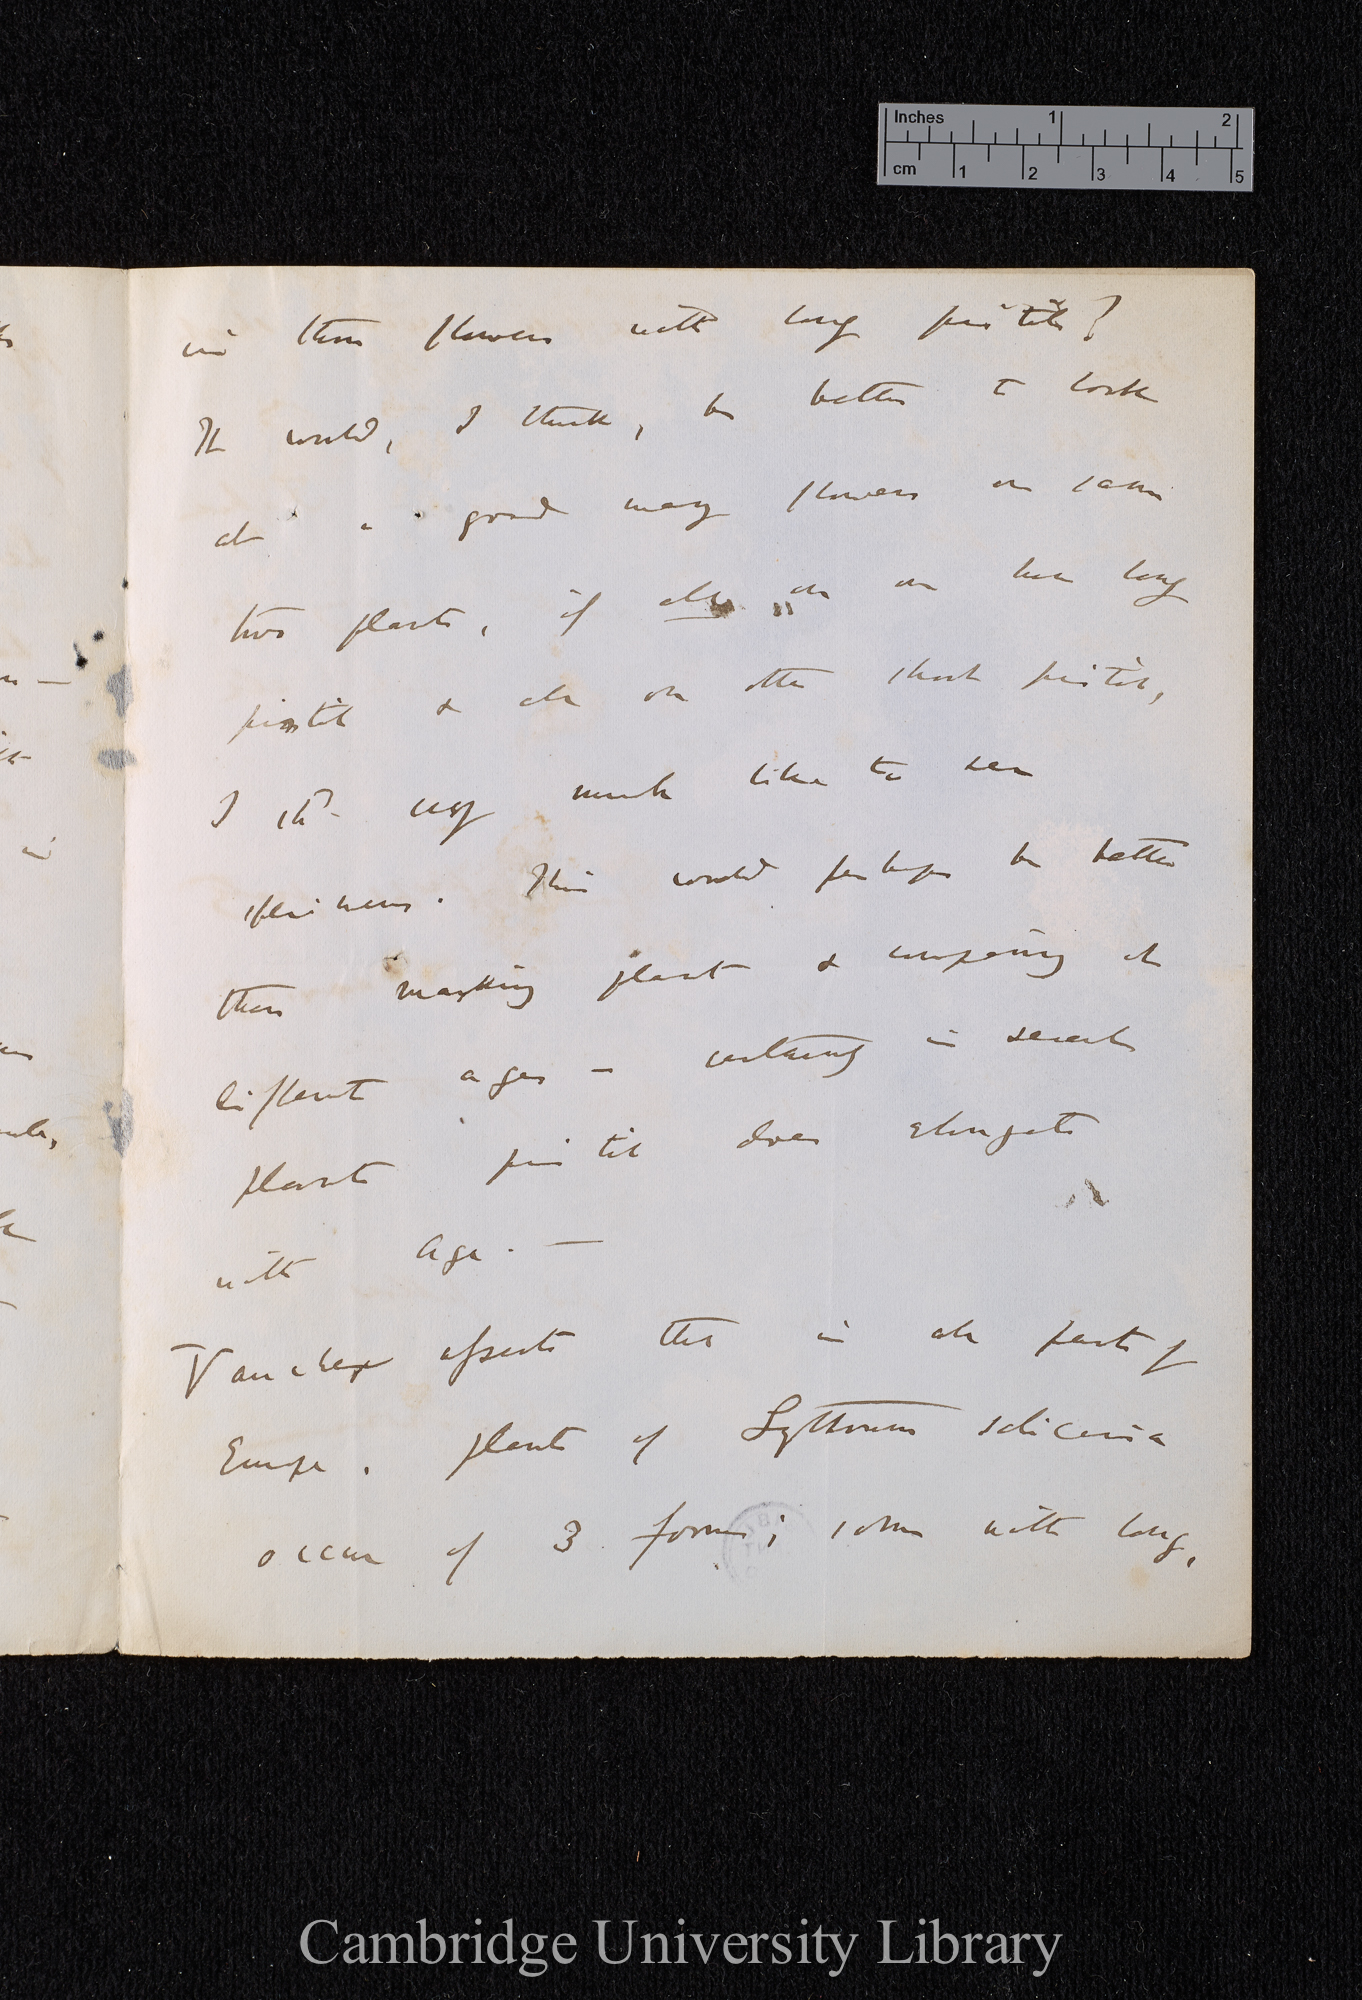 Inches 1 2
cm 1 2 3 4 5
in those flowers with long pistils?
It would, I think, be better to look
at a good many flowers on same
two plants, if all on one have long
pistil & all on other short pistils,
I shd. very much like to see
specimens. This would perhaps be better
than marking plant & comparing at
different ages — certainly in several
plants pistil does elongate
with age. —
Vaucher asserts that in all parts of
Europe. plants of Lythrum salicaria
occur of 3 forms; some with long,
Cambridge University Library